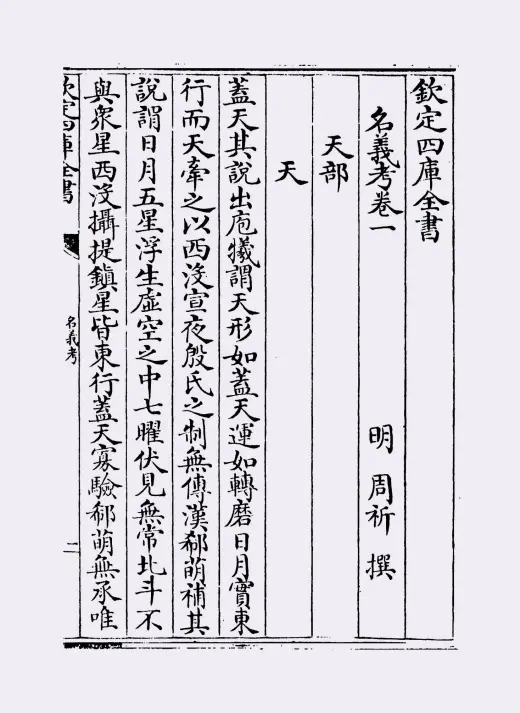 欽定四庫全書
名義考卷一
明 周祈 撰
天部
天
蓋天其說出庖犧謂天形如蓋天運如轉磨日月實東
行而天牽之以西沒宣夜殷氏之制無傳漢郗萌補其
說謂日月五星浮生虛空之中七曜伏見無常北斗不
與衆星西沒攝提鎮星皆東行蓋天寡驗郗萌無承唯
欽定四庫全書
名義考
二